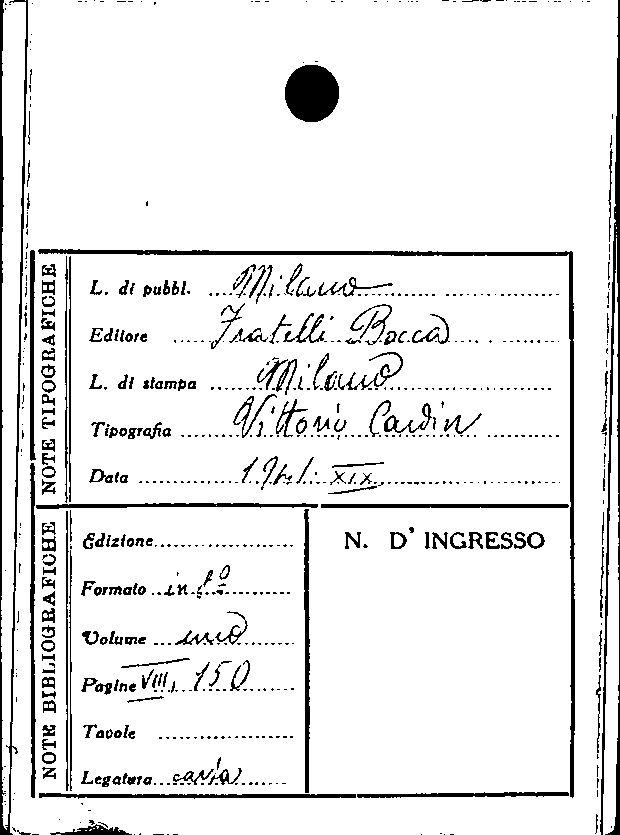 NOTE TIPOGRAFICHE
L. di pubbl. Milano
Editore Fratelli Bocca
L. di stampa Milano
Tipografia Vittorio Cardin
Data 1941. XIX
NOTE BIBLIOGRAFICHE
Edizione
Formato in 8º
Volume uno
Pagine VIII, 150
Tavole
Legatura carta
N. D' INGRESSO